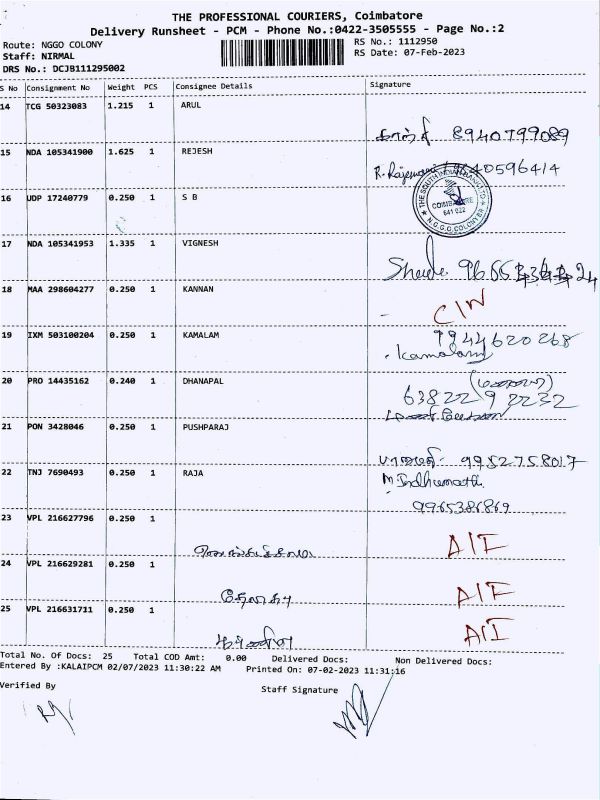 THE PROFESSIONAL COURIERS, Coimbatore
Delivery Runsheet - PCM - Phone No.:0422-3505555 - Page No.:2
Route: NGGO COLONY
Staff: NIRMAL
DRS No.: DCJB111295002
RS No.: 1112950
RS Date: 07-Feb-2023
S No Consignment No Weight PCS Consignee Details Signature
14 TCG 50323083 1.215 1 ARUL
8940799089
15 NDA 105341900 1.625 1 REJESH
40596414
16 UDP 17240779 0.250 1 S B
THE SOUTH INDIAN BANK LTD
COIMBATORE
641 022
N.G.G.O.COLONY BR
17 NDA 105341953 1.335 1 VIGNESH
18 MAA 298604277 0.250 1 KANNAN
C/N
19 IXM 503100204 0.250 1 KAMALAM
9944620268
Kamalam
20 PRO 14435162 0.240 1 DHANAPAL
63822 92232
21 PON 3428046 0.250 1 PUSHPARAJ
9952758017
22 TNJ 7690493 0.250 1 RAJA
M Indhumathi
9965386869
23 VPL 216627796 0.250 1
A/F
24 VPL 216629281 0.250 1
A/F
25 VPL 216631711 0.250 1
Total No. Of Docs: 25 Total COD Amt: 0.00 Delivered Docs: Non Delivered Docs:
Entered By :KALAIPCM 02/07/2023 11:30:22 AM Printed On: 07-02-2023 11:31:16
Verified By Staff Signature